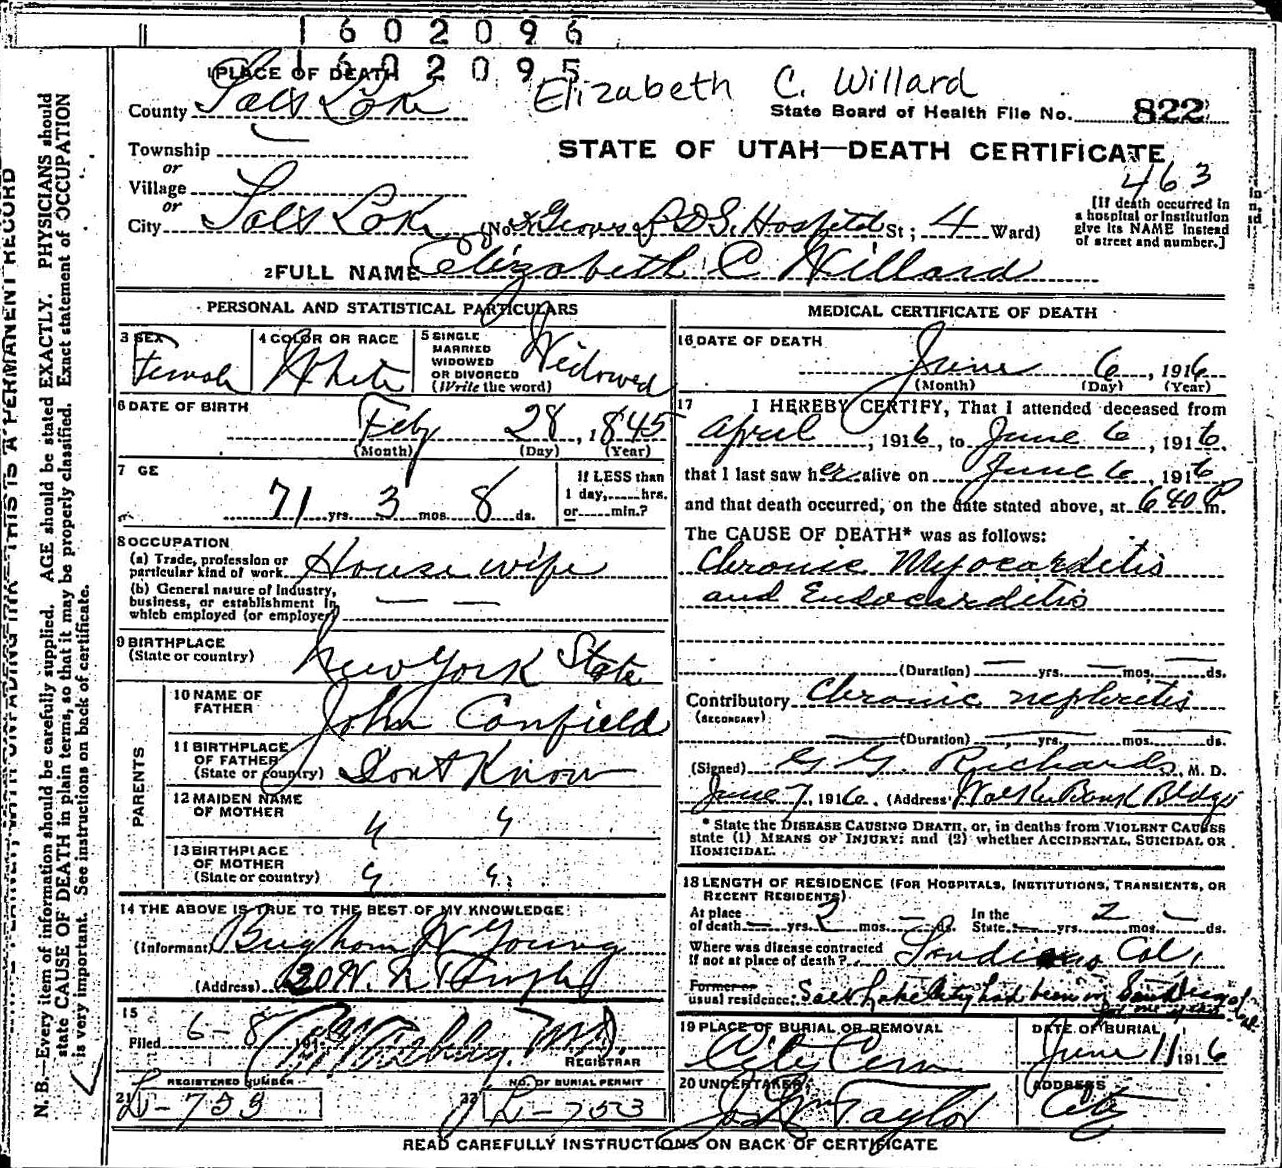 1602096
1602095
Elizabeth C. Willard
1 PLACE OF DEATH
County Salt Lake
State Board of Health File No. 822
Township
or
STATE OF UTAH—DEATH CERTIFICATE
463
Village
or
City Salt Lake (No. Groves L D S. Hospital St; 4 Ward)
[If death occurred in a hospital or institution give its NAME instead of street and number.]
2 FULL NAME Elizabeth C Willard
PERSONAL AND STATISTICAL PARTICULARS
3 SEX Female
4 COLOR OR RACE White
5 SINGLE MARRIED WIDOWED OR DIVORCED (Write the word) Widowed
6 DATE OF BIRTH Feb 28, 1845
(Month) (Day) (Year)
7 GE
71 yrs. 3 mos. 8 ds.
If LESS than 1 day, hrs. or min.?
8 OCCUPATION
(a) Trade, profession or particular kind of work House wife
(b) General nature of industry, business, or establishment in which employed (or employer) — —
9 BIRTHPLACE
(State or country) New York State
PARENTS
10 NAME OF FATHER John Canfield
11 BIRTHPLACE OF FATHER (State or country) Dont Know
12 MAIDEN NAME OF MOTHER " "
13 BIRTHPLACE OF MOTHER (State or country) " "
14 THE ABOVE IS TRUE TO THE BEST OF MY KNOWLEDGE
(Informant) Brigham W Young
(Address) 20 W. N Temple
15
Filed 6-8 191 M.D.
REGISTRAR
REGISTERED NUMBER
21 L-753
NO. OF BURIAL PERMIT
22 L-753
MEDICAL CERTIFICATE OF DEATH
16 DATE OF DEATH
June 6, 1916
(Month) (Day) (Year)
17 I HEREBY CERTIFY, That I attended deceased from
April, 1916, to June 6, 1916.
that I last saw her alive on June 6, 1916
and that death occurred, on the date stated above, at 640 P m.
The CAUSE OF DEATH* was as follows:
Chronic Myocarditis
and Endocarditis
(Duration) — yrs. — mos. — ds.
Contributory Chronic nephritis
(SECONDARY)
(Duration) — yrs. — mos. — ds.
(Signed) G. G. Richards, M. D.
June 7, 1916. (Address) Walker Bank Bldg
* State the DISEASE CAUSING DEATH, or, in deaths from VIOLENT CAUSES
state (1) MEANS OF INJURY; and (2) whether ACCIDENTAL, SUICIDAL OR
HOMICIDAL.
18 LENGTH OF RESIDENCE (FOR HOSPITALS, INSTITUTIONS, TRANSIENTS, OR
RECENT RESIDENTS)
At place of death — yrs. 2 mos. — ds. In the State — yrs. 2 mos. — ds.
Where was disease contracted
If not at place of death? Sandiego Cal.
Former or
usual residence: Salt Lake City had been in San Diego Cal
for one year
19 PLACE OF BURIAL OR REMOVAL
City Cem
DATE OF BURIAL
June 11 1916
20 UNDERTAKER
Jos Wm Taylor
ADDRESS
City
READ CAREFULLY INSTRUCTIONS ON BACK OF CERTIFICATE
THIS IS A PERMANENT RECORD
N. B.—Every item of information should be carefully supplied. AGE should be stated EXACTLY. PHYSICIANS should
state CAUSE OF DEATH in plain terms, so that it may be properly classified. Exact statement of OCCUPATION
is very important. See instructions on back of certificate.